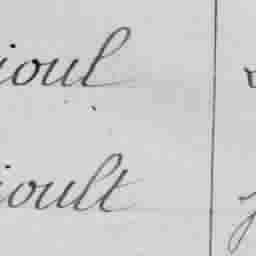 ioul
ioult